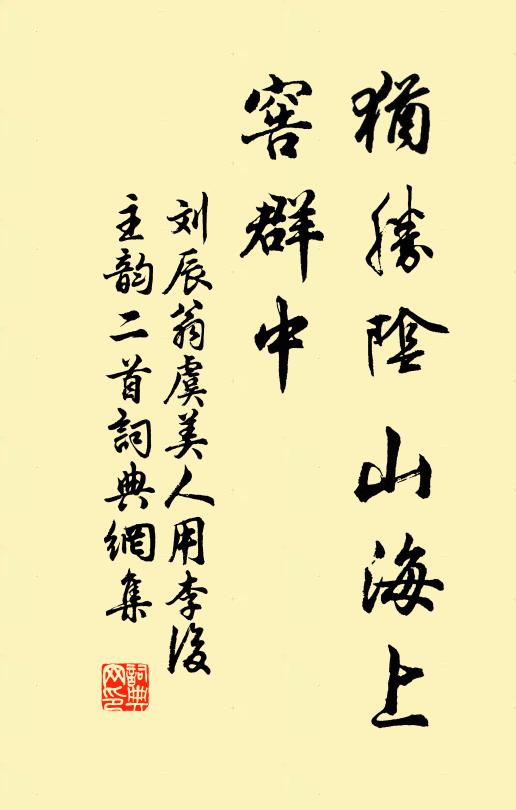 猶勝陰山海上
窖群中
刘辰翁虞美人用李後
主韵二首詞典網集
詞典
网印